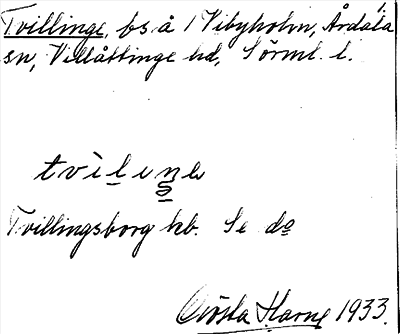 Tvillinge, bs å / Vibyholm, Årdala
sn, Villåttinge hd, Sörml. l.
Tvillingsborg hb. Se do
Gösta Harne 1933.